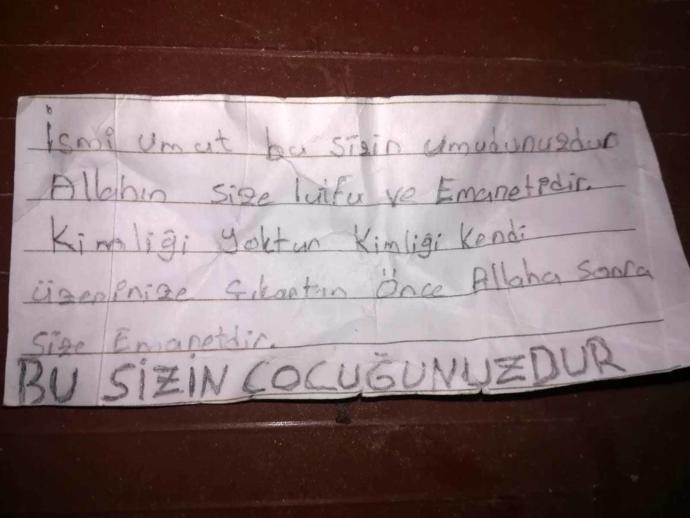 İsmi umut bu sizin umudunuzdur
Allahın size lutfu ve Emanetidir.
Kimliği yoktur Kimliği kendi
üzerinize çıkartın Önce Allaha sonra
size Emanetdir.
BU SİZİN ÇOCUĞUNUZDUR